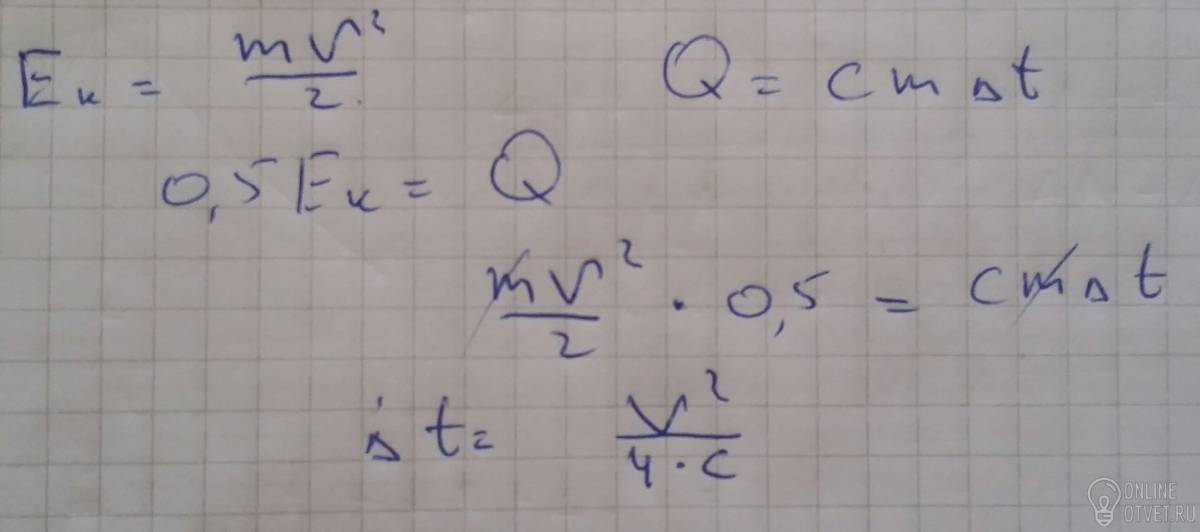 Eк = mv²/2 Q = cmΔt
0,5Eк = Q
mv²/2 · 0,5 = cmΔt
Δt = v²/4·c
ONLINE
OTVET.RU